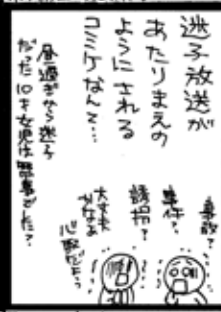 迷子放送が
あたりまえの
ようにされる
コミケなんて…
昼過ぎから迷子
だった10才女児は無事でした?
事故?
事件?
誘拐?
大丈夫
かなぁ
心配だよぅ